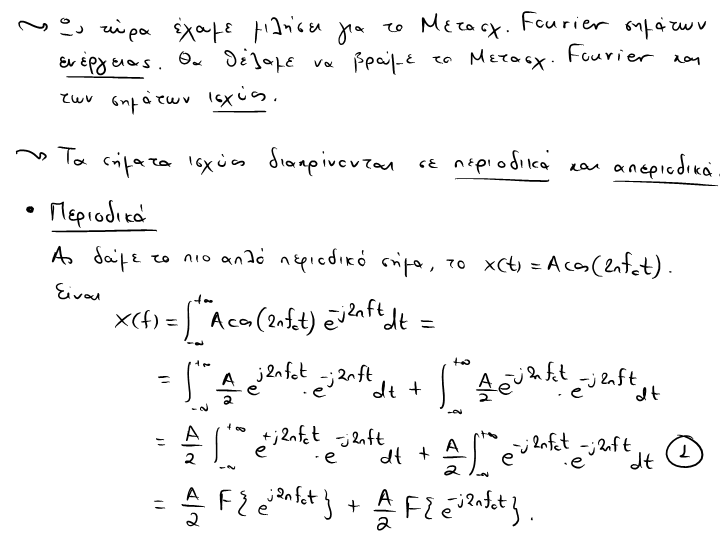 ~> Ως τώρα έχαμε μιλήσει για το Μετασχ. Fourier σημάτων
ενέργειας. Θα θέλαμε να βράμε το Μετασχ. Fourier και
των σημάτων ισχύος.
~> Τα σήματα ισχύος διακρίνονται σε περιοδικά και απεριοδικά.
• Περιοδικά
Ας δάμε το πιο απλό περιοδικό σήμα, το x(t) = A cos(2πf₀t).
Είναι
X(f) = ∫_{-∞}^{+∞} A cos(2πf₀t) e^{-j2πft} dt =
= ∫_{-∞}^{+∞} A/2 e^{j2πf₀t} · e^{-j2πft} dt + ∫_{-∞}^{+∞} A/2 e^{-j2πf₀t} · e^{-j2πft} dt
= A/2 ∫_{-∞}^{+∞} e^{+j2πf₀t} · e^{-j2πft} dt + A/2 ∫_{-∞}^{+∞} e^{-j2πf₀t} · e^{-j2πft} dt ①
= A/2 F{e^{j2πf₀t}} + A/2 F{e^{-j2πf₀t}}.